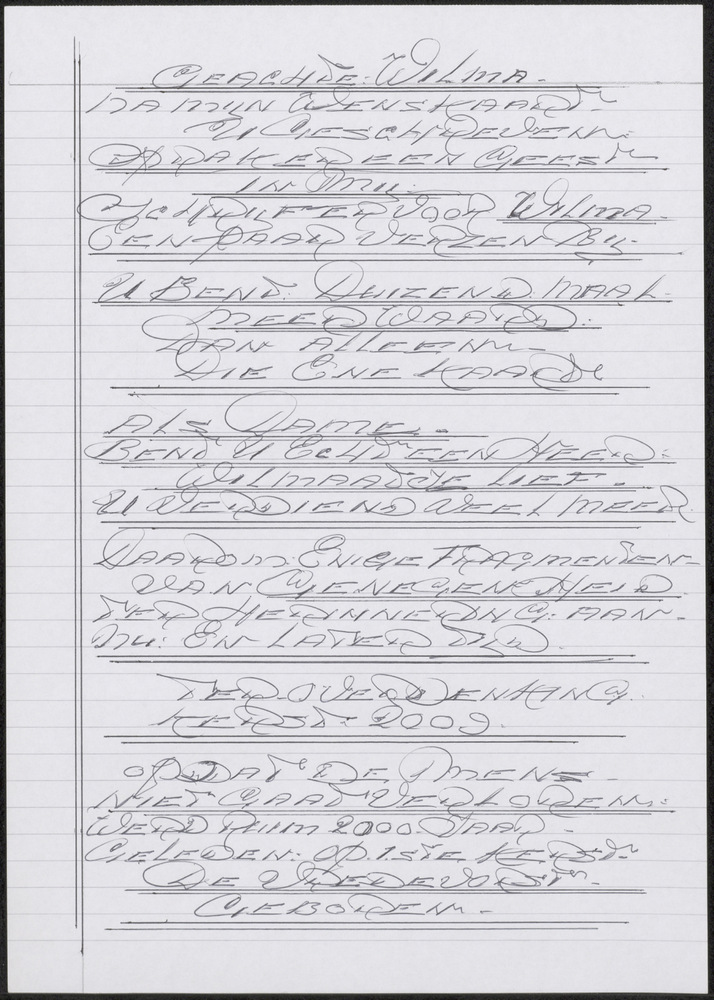 GEACHTE: WILMA -
NA MIJN WENSKAART
U GESCHREVEN:
SPRAK ER EEN GEEST
IN MIJ:
SCHRIJF ER VOOR WILMA
EEN PAAR VERZEN BIJ:
U BENT: DUIZEND MAAL
MEER WAARD:
DAN ALLEEN
DIE ENE KAART
ALS DAME:
BENT U ECHT EEN HEER:
WILMAATJE LIEF.
U VERDIEND VEEL MEER
DAAROM: ENIGE FRAGMENTEN
VAN GENEGENHEID
TER HERINNERING: AAN
NU: EN LATER TIJD
TER OVERDENKING
KERST: 2009.
OPDAT DE MENS -
NIET GAAT VERLOREN:
WERD RUIM 2000 JAAR
GELEDEN: OP 1STE KERST
DE VREDEVORST
GEBOREN -